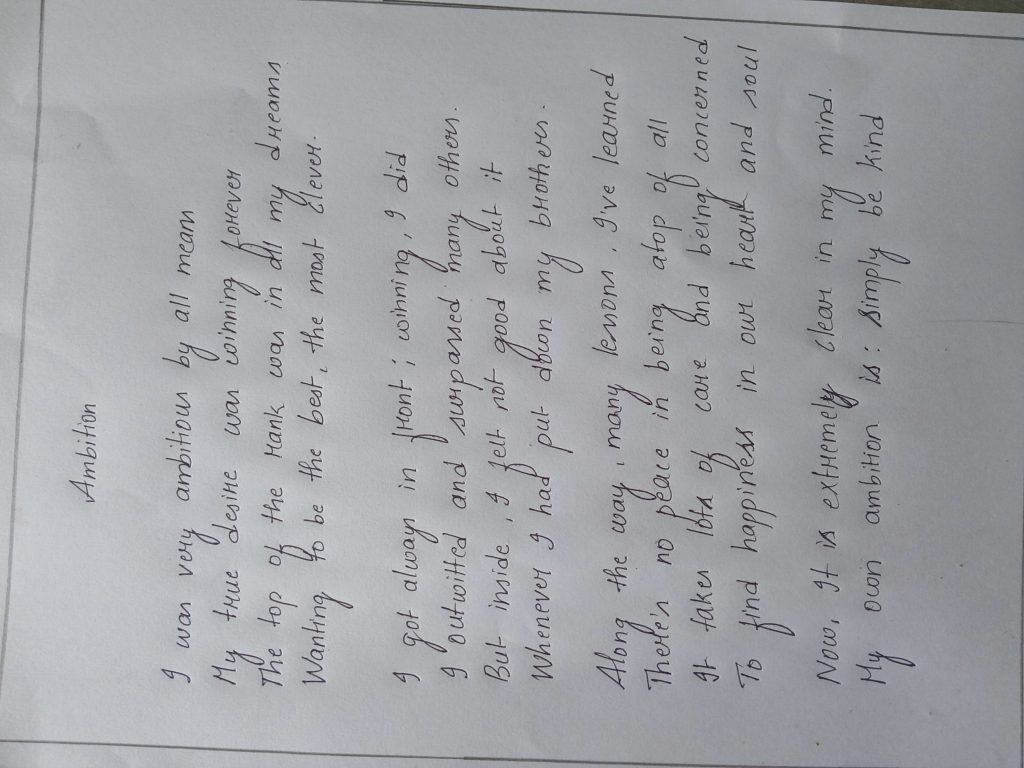 Ambition
I was very ambitious by all mean
My true desire was winning forever
The top of the rank was in all my dreams
Wanting to be the best, the most clever.
I got always in front; winning, I did
I outwitted and surpassed many others.
But inside, I felt not good about it
Whenever I had put down my brothers.
Along the way, many lessons, I've learned
There's no peace in being atop of all
It takes lots of care and being concerned
To find happiness in our heart and soul
Now, It is extremely clear in my mind.
My own ambition is: simply be kind